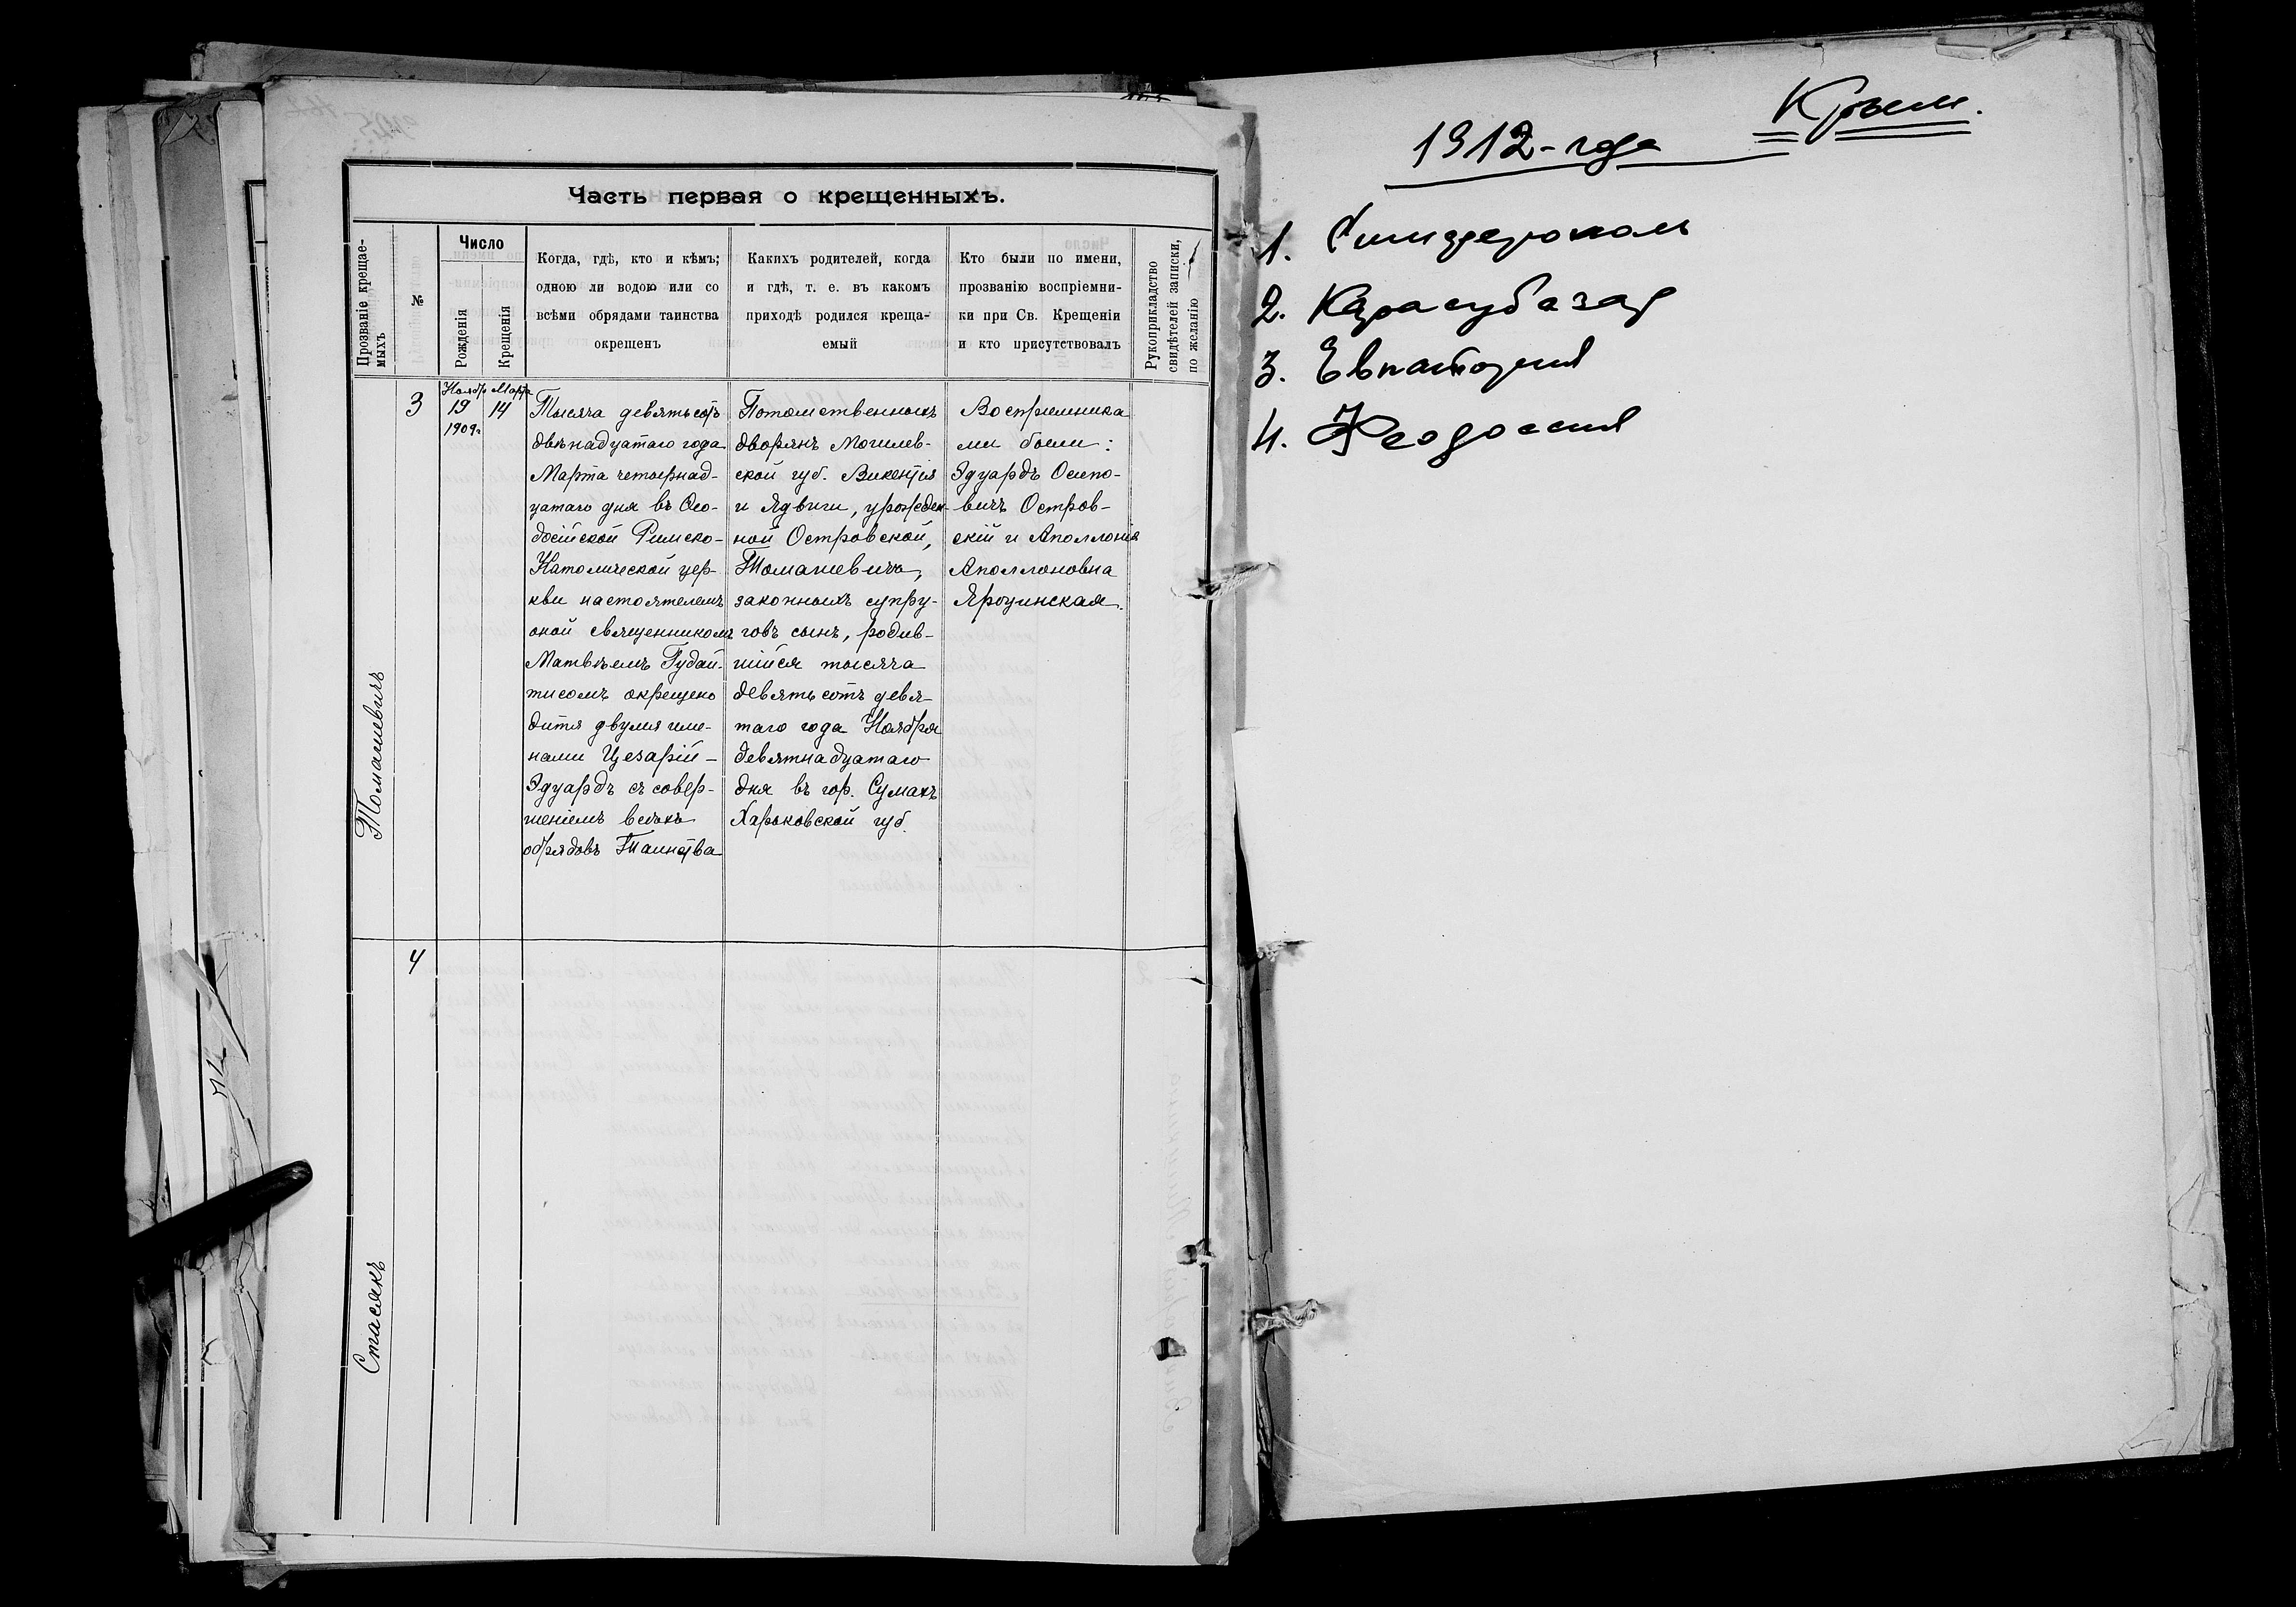 Часть первая о крещенныхъ.
Прозваніе крещае-
мыхъ
№
Число
Рожденія
Крещенія
Когда, гдѣ, кто и кѣмъ;
одною ли водою или со
всѣми обрядами таинства
окрещенъ
Какихъ родителей, когда
и гдѣ, т. е. въ какомъ
приходѣ родился креща-
емый
Кто были по имени,
прозванію воспріемни-
ки при Св. Крещеніи
и кто присутствовалъ
Рукоприкладство
свидѣтелей записки,
по желанію
Томашевичъ
3
Ноябр
19
1909г
Марта
14
Тысяча девятьсотъ
двѣнадцатаго года
Марта четырнад-
цатаго дня въ Ѳео-
досійской Римско-
Католической цер-
кви настоятелемъ
оной священникомъ
Матвѣемъ Гудай-
тисомъ окрещено
дитя двумя име-
нами Цезарій-
Эдуардъ съ совер-
шеніемъ всѣхъ
обрядовъ Таинства
Потомственныхъ
дворянъ Могилев-
ской губ. Викентія
и Ядвиги, урожден-
ной Островской,
Томашевичъ,
законныхъ супру-
говъ сынъ, родив-
шійся тысяча
девятьсотъ девя-
таго года Ноября
девятнадцатаго
дня въ гор. Сумахъ
Харьковской губ.
Воспріемника
ми были:
Эдуардъ Осипо-
вичъ Остров-
скій и Аполлонія
Аполлоновна
Яроцинская.
Стасякъ
4
Крым.
1912-года
1. Симферополь
2. Карасубазар
3. Евпатория
4. Феодоссия